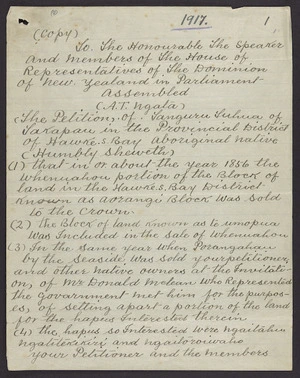 1917. 1
(Copy)
To. The Honourable The Speaker
and Members of The House of
Representatives of The Dominion
of New Zealand in Parliament
Assembled
(A.T. Ngala)
(The Petition, of. Tanguru Tuhua of
Takapau in the Provincial District
of Hawke.s. Bay aboriginal native
(Humbly Sheweth)
(1) That in or about the year 1856 the
whenuahou portion of the Block of
land in the Hawke.s. Bay District
known as aorangi Block was sold
to the Crown.
(2) The Block of land known as te umopua
was Included in the sale of Whenuahou
(3) In the same year when Porangahau
by the Seaside, was sold your petitioner,
and other native owners at the Invitati-
on, of Mr Donald Mclean who Represented
the government met him for the purpos-
es, of setting apart a portion of the land
for the hapus Interested therein
(4) the hapus so Interested were ngaitahu
ngaitekikiri and ngaitoroiwaho
your Petitioner and the members